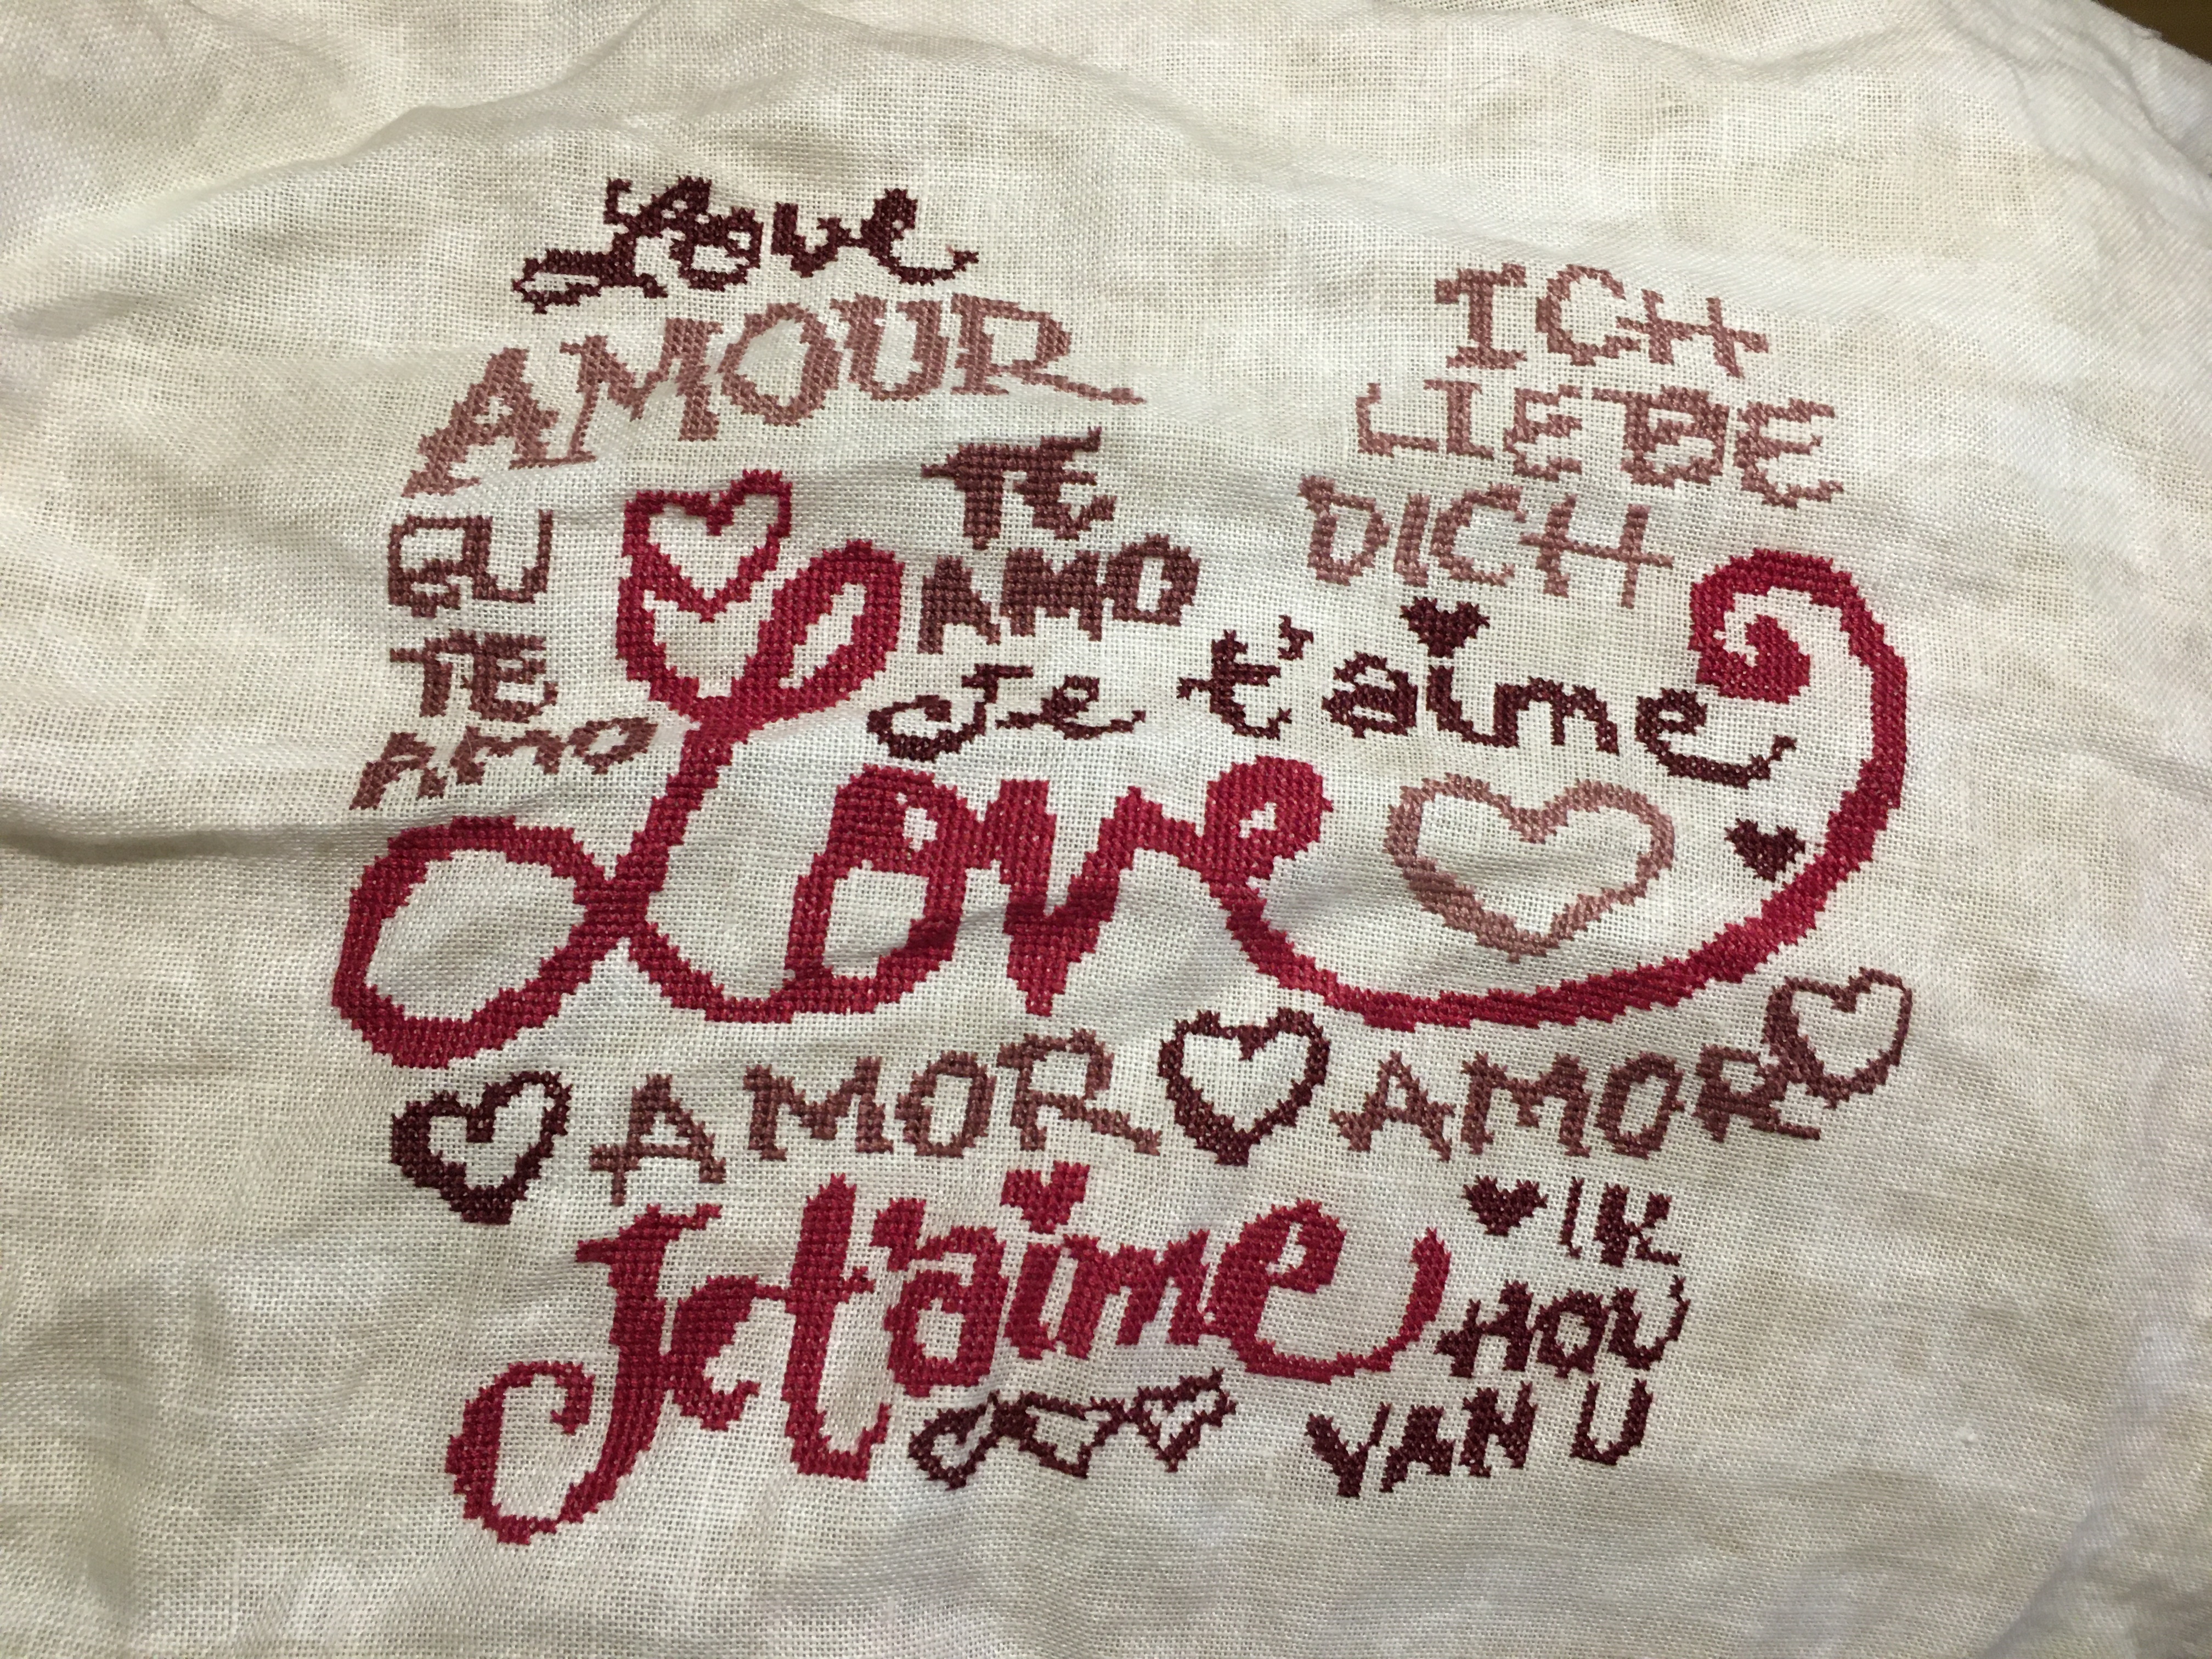 Love
AMOUR
ICH
LIEBE
DICH
TE
AMO
EU
TE
AMO
Je t'aime
Love
AMOR AMOR
Je t'aime
IK
HOU
VAN U